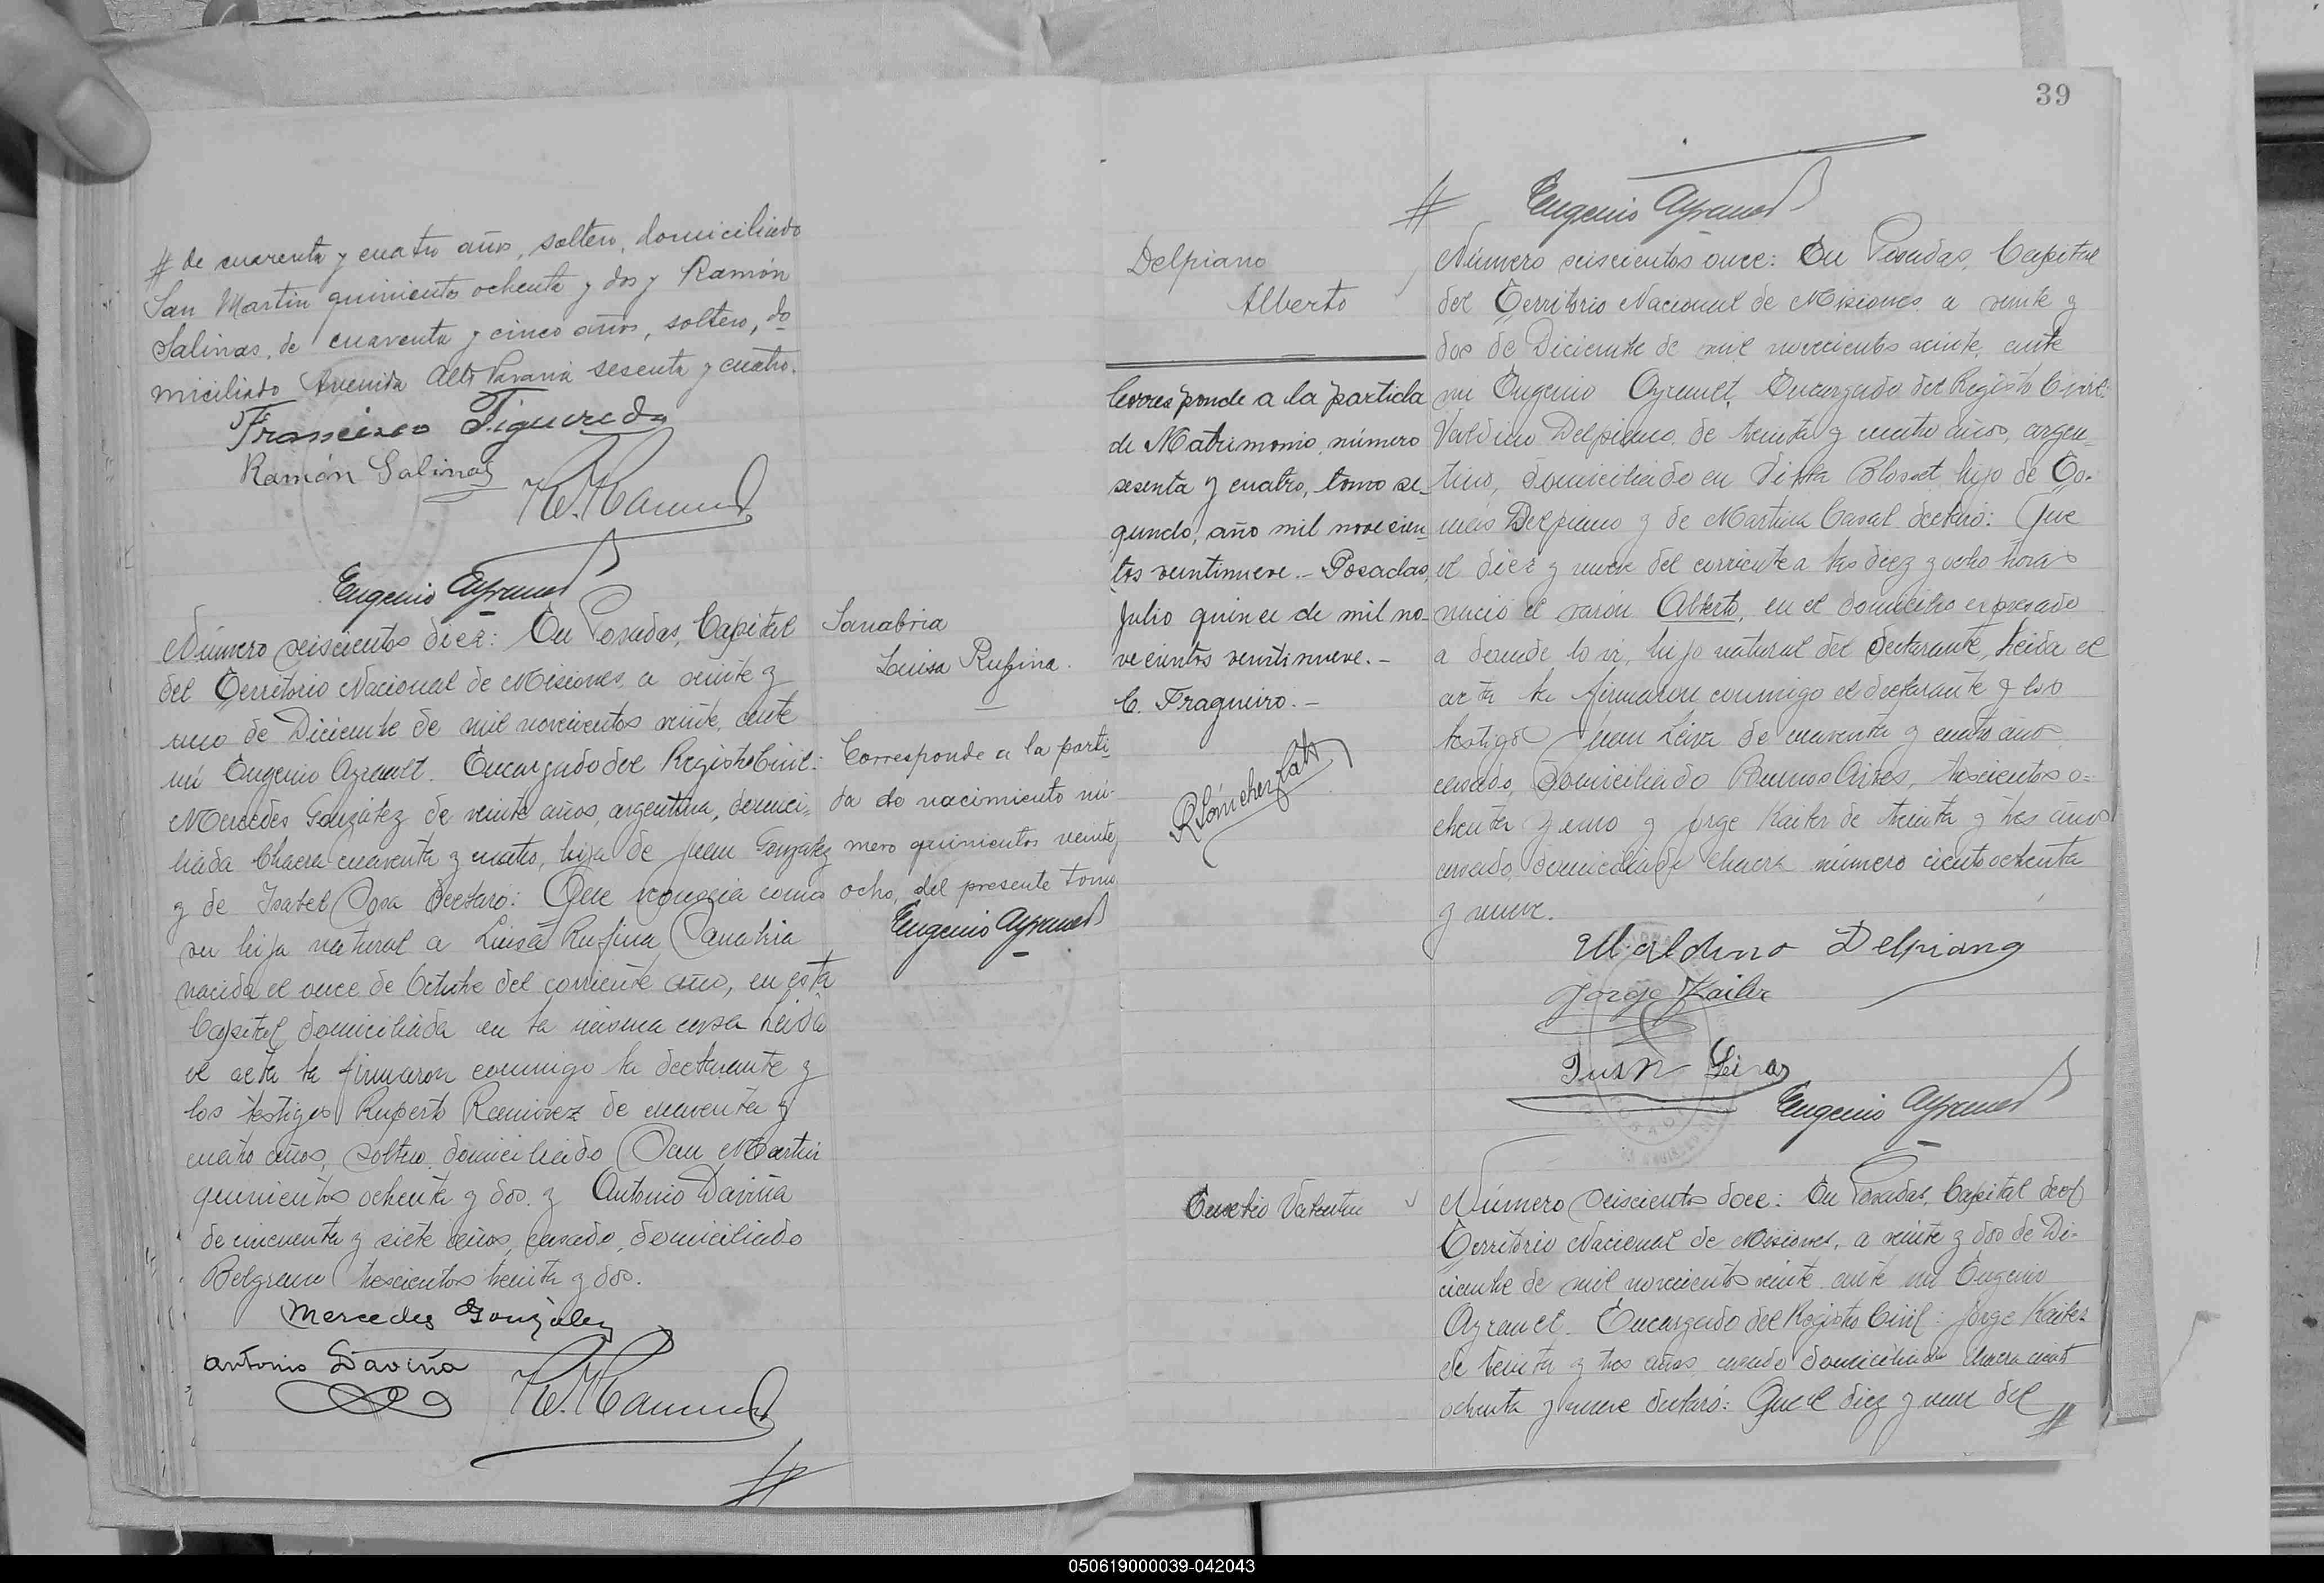 # de cuarenta y cuatro años, soltero, domiciliado
San Martin quinientos ochenta y dos y Ramón
Salinas, de cuarenta y cinco años, soltero, do
miciliado Avenida Alto Paraná sesenta y cuatro.
Francisco Figueredo
Ramón Salinas
Eugenio Ayrault
Número seiscientos diez: En Posadas, Capital
del Territorio Nacional de Misiones a veinte y
uno de Diciembre de mil novecientos veinte, ante
mi Eugenio Ayrault. Encargado del Registro Civil:
Mercedes González de veinte años, argentina, domici=
liada Chacra cuarenta y cuatro, hija de Juan Gonzalez
y de Isabel Sosa declaró: Que reconocia como
su hija natural a Luisa Rufina Sanabria
nacida el once de Octubre del corriente año, en esta
Capital domiciliada en la misma casa Leida
el acta la firmaron conmigo la declarante y
los testigos Ruperto Ramirez de cuarenta y
cuatro años, soltero, domiciliado San Martin
quinientos ochenta y dos. y Antonio Daviña
de cincuenta y siete años, casado, domiciliado
Belgrano trescientos treinta y dos.
Mercedes González
Antonio Daviña
#
Sanabria
Luisa Rufina.
Corresponde a la parti-
da de nacimiento nú-
mero quinientos veinte y
ocho, del presente tomo
Eugenio Ayrault
39
# Eugenio Ayrault
Delpiano
Alberto
Corresponde a la partida
de Matrimonio, número
sesenta y cuatro, tomo se-
gundo, año mil novecien-
tos veintinueve.- Posadas,
Julio quince de mil no-
vecientos veintinueve.-
C. Fragueiro.-
Número seiscientos once: En Posadas, Capital
del Territorio Nacional de Misiones a veinte y
dos de Diciembre de mil novecientos veinte, ante
mi Eugenio Ayrault, Encargado del Registro Civil:
Valdino Delpiano de treinta y cuatro años, argen=
tino, domiciliado en Villa Blosset hijo de To-
más Delpiano y de Martina Casal declaró: Que
el diez y nueve del corriente a las diez y ocho horas
nació el varón Alberto, en el domicilio expresado
a donde lo vi, hijo natural del declarante, Leida el
acta la firmaron conmigo el declarante y los
testigos Juan Leiva de cuarenta y cuatro años
casado, domiciliado Buenos Aires, trescientos o=
chenta y uno y Jorge Kailer de treinta y tres años
casado, domiciliado chacra número ciento ochenta
y nueve.
Ubaldino Delpiano
Jorge Kailer
Juan Leiva
Eugenio Ayrault
Eusebio Valentin
Número seiscientos doce: En Posadas, Capital del
Territorio Nacional de Misiones, a veinte y dos de Di-
ciembre de mil novecientos veinte ante mi Eugenio
Ayrault. Encargado del Registro Civil: Jorge Kailer
de treinta y tres años, casado domiciliado Chacra ciento
ochenta y nueve declaró: Que el diez y nueve del #
050619000039-042043